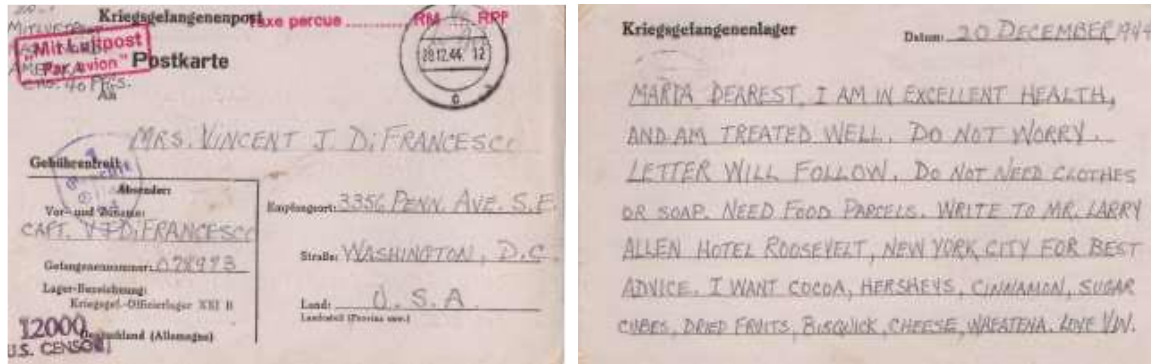 Kriegsgefangenenpost
Taxe percue ........... RM RPF
"Mit Luftpost
Par avion"
Postkarte
28.12.44. 12
An
MRS. VINCENT J. DiFRANCESCO
Gebührenfrei!
Absender:
Vor- und Zuname:
CAPT. V J DiFRANCESCO
Gefangenennummer: 078973
Lager-Bezeichnung:
Kriegsgef.-Offizierlager XXI B
Deutschland (Allemagne)
12000
U.S. CENSOR
Empfangsort: 3356 PENN. AVE. S.E.
Straße: WASHINGTON, D.C.
Land: U.S.A.
Landesteil (Provinz usw.)
Kriegsgefangenenlager
Datum: 20 DECEMBER 1944
MARTA DEAREST, I AM IN EXCELLENT HEALTH,
AND AM TREATED WELL. DO NOT WORRY.
LETTER WILL FOLLOW. DO NOT NEED CLOTHES
OR SOAP. NEED FOOD PARCELS. WRITE TO MR. LARRY
ALLEN HOTEL ROOSEVELT, NEW YORK CITY FOR BEST
ADVICE. I WANT COCOA, HERSHEYS, CINNAMON, SUGAR
CUBES, DRIED FRUITS, BISQUICK, CHEESE, WHEATENA. LOVE VIN.